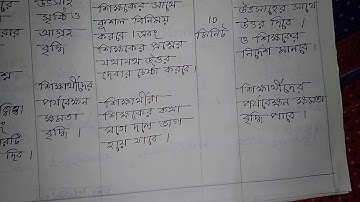 উৎসাহ
বৃদ্ধি ও
আগ্রহ
বৃদ্ধি
শিক্ষার্থীদের
পর্যবেক্ষন
ক্ষমতা
বৃদ্ধি ।
শিক্ষকের সাথে
কুশল বিনিময়
করবে এবং
শিক্ষকের প্রশ্নের
যথাযথ উত্তর
দেবার চেষ্টা করবে ।
শিক্ষার্থীরা
শিক্ষকের কথা
মতো দলে ভাগ
হয়ে যাবে ।
10
মিনিট
উৎসাহের সাথে
উত্তর দিবে ।
ও শিক্ষকের
নির্দেশ মানবে ।
শিক্ষার্থীদের
পর্যবেক্ষন ক্ষমতা
বৃদ্ধি পাবে ।